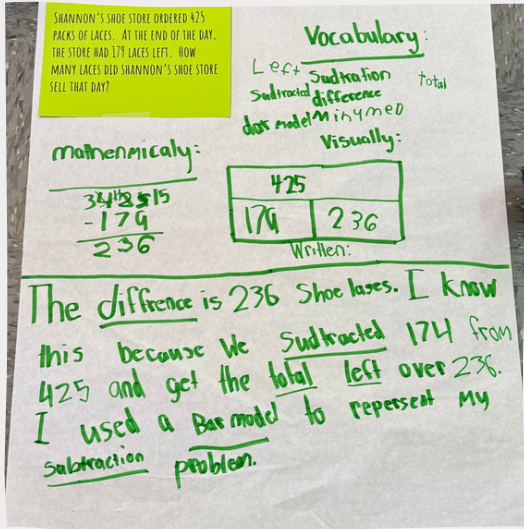 SHANNON'S SHOE STORE ORDERED 425
PACKS OF LACES. AT THE END OF THE DAY,
THE STORE HAD 179 LACES LEFT. HOW
MANY LACES DID SHANNON'S SHOE STORE
SELL THAT DAY?
Vocabulary:
Left Sudtration total
Sudtracted difference
dar model Minymed
mathenmicaly:
-179
236
Visually:
425
179 236
Written:
The diffrence is 236 Shoe lases. I know
this because We Sudtracted 174 from
425 and get the total left over 236.
I used a Bar model to repersent My
Subtraction problem.